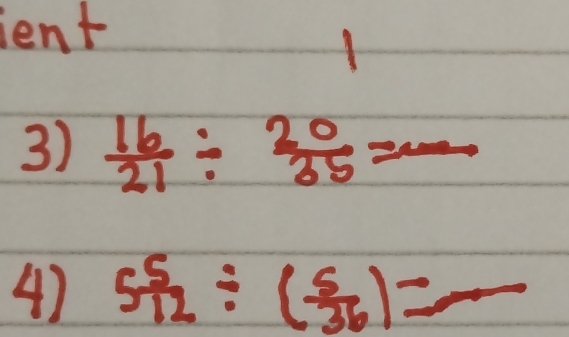 ient
3) 16/21 ÷ 20/35 =
4) 5 5/12 ÷ (5/36) =